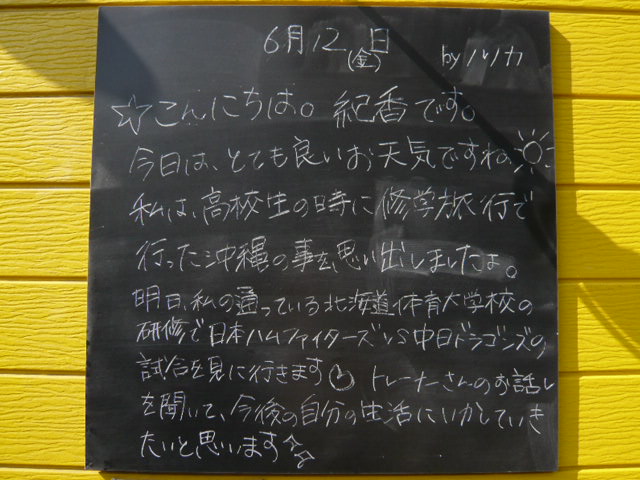 6月12日
(金)
by ルリカ
☆こんにちは。紀香です。
今日は、とても良いお天気ですね。
私は、高校生の時に修学旅行で
行った沖縄の事を思い出しましたよ。
明日、私の通っている北海道体育大学校の
研修で日本ハムファイターズVS中日ドラゴンズの
試合を見に行きます トレーナーさんのお話し
を聞いて、今後の自分の生活にいかしていき
たいと思います